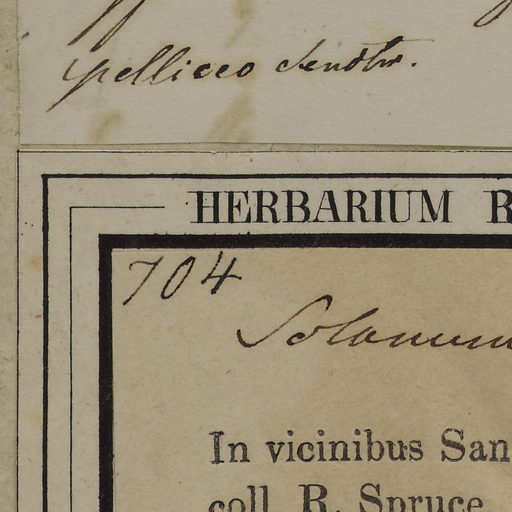 pelliceo
HERBARIUM R
704
Solanum
In vicinibus San
coll. R. Spruce